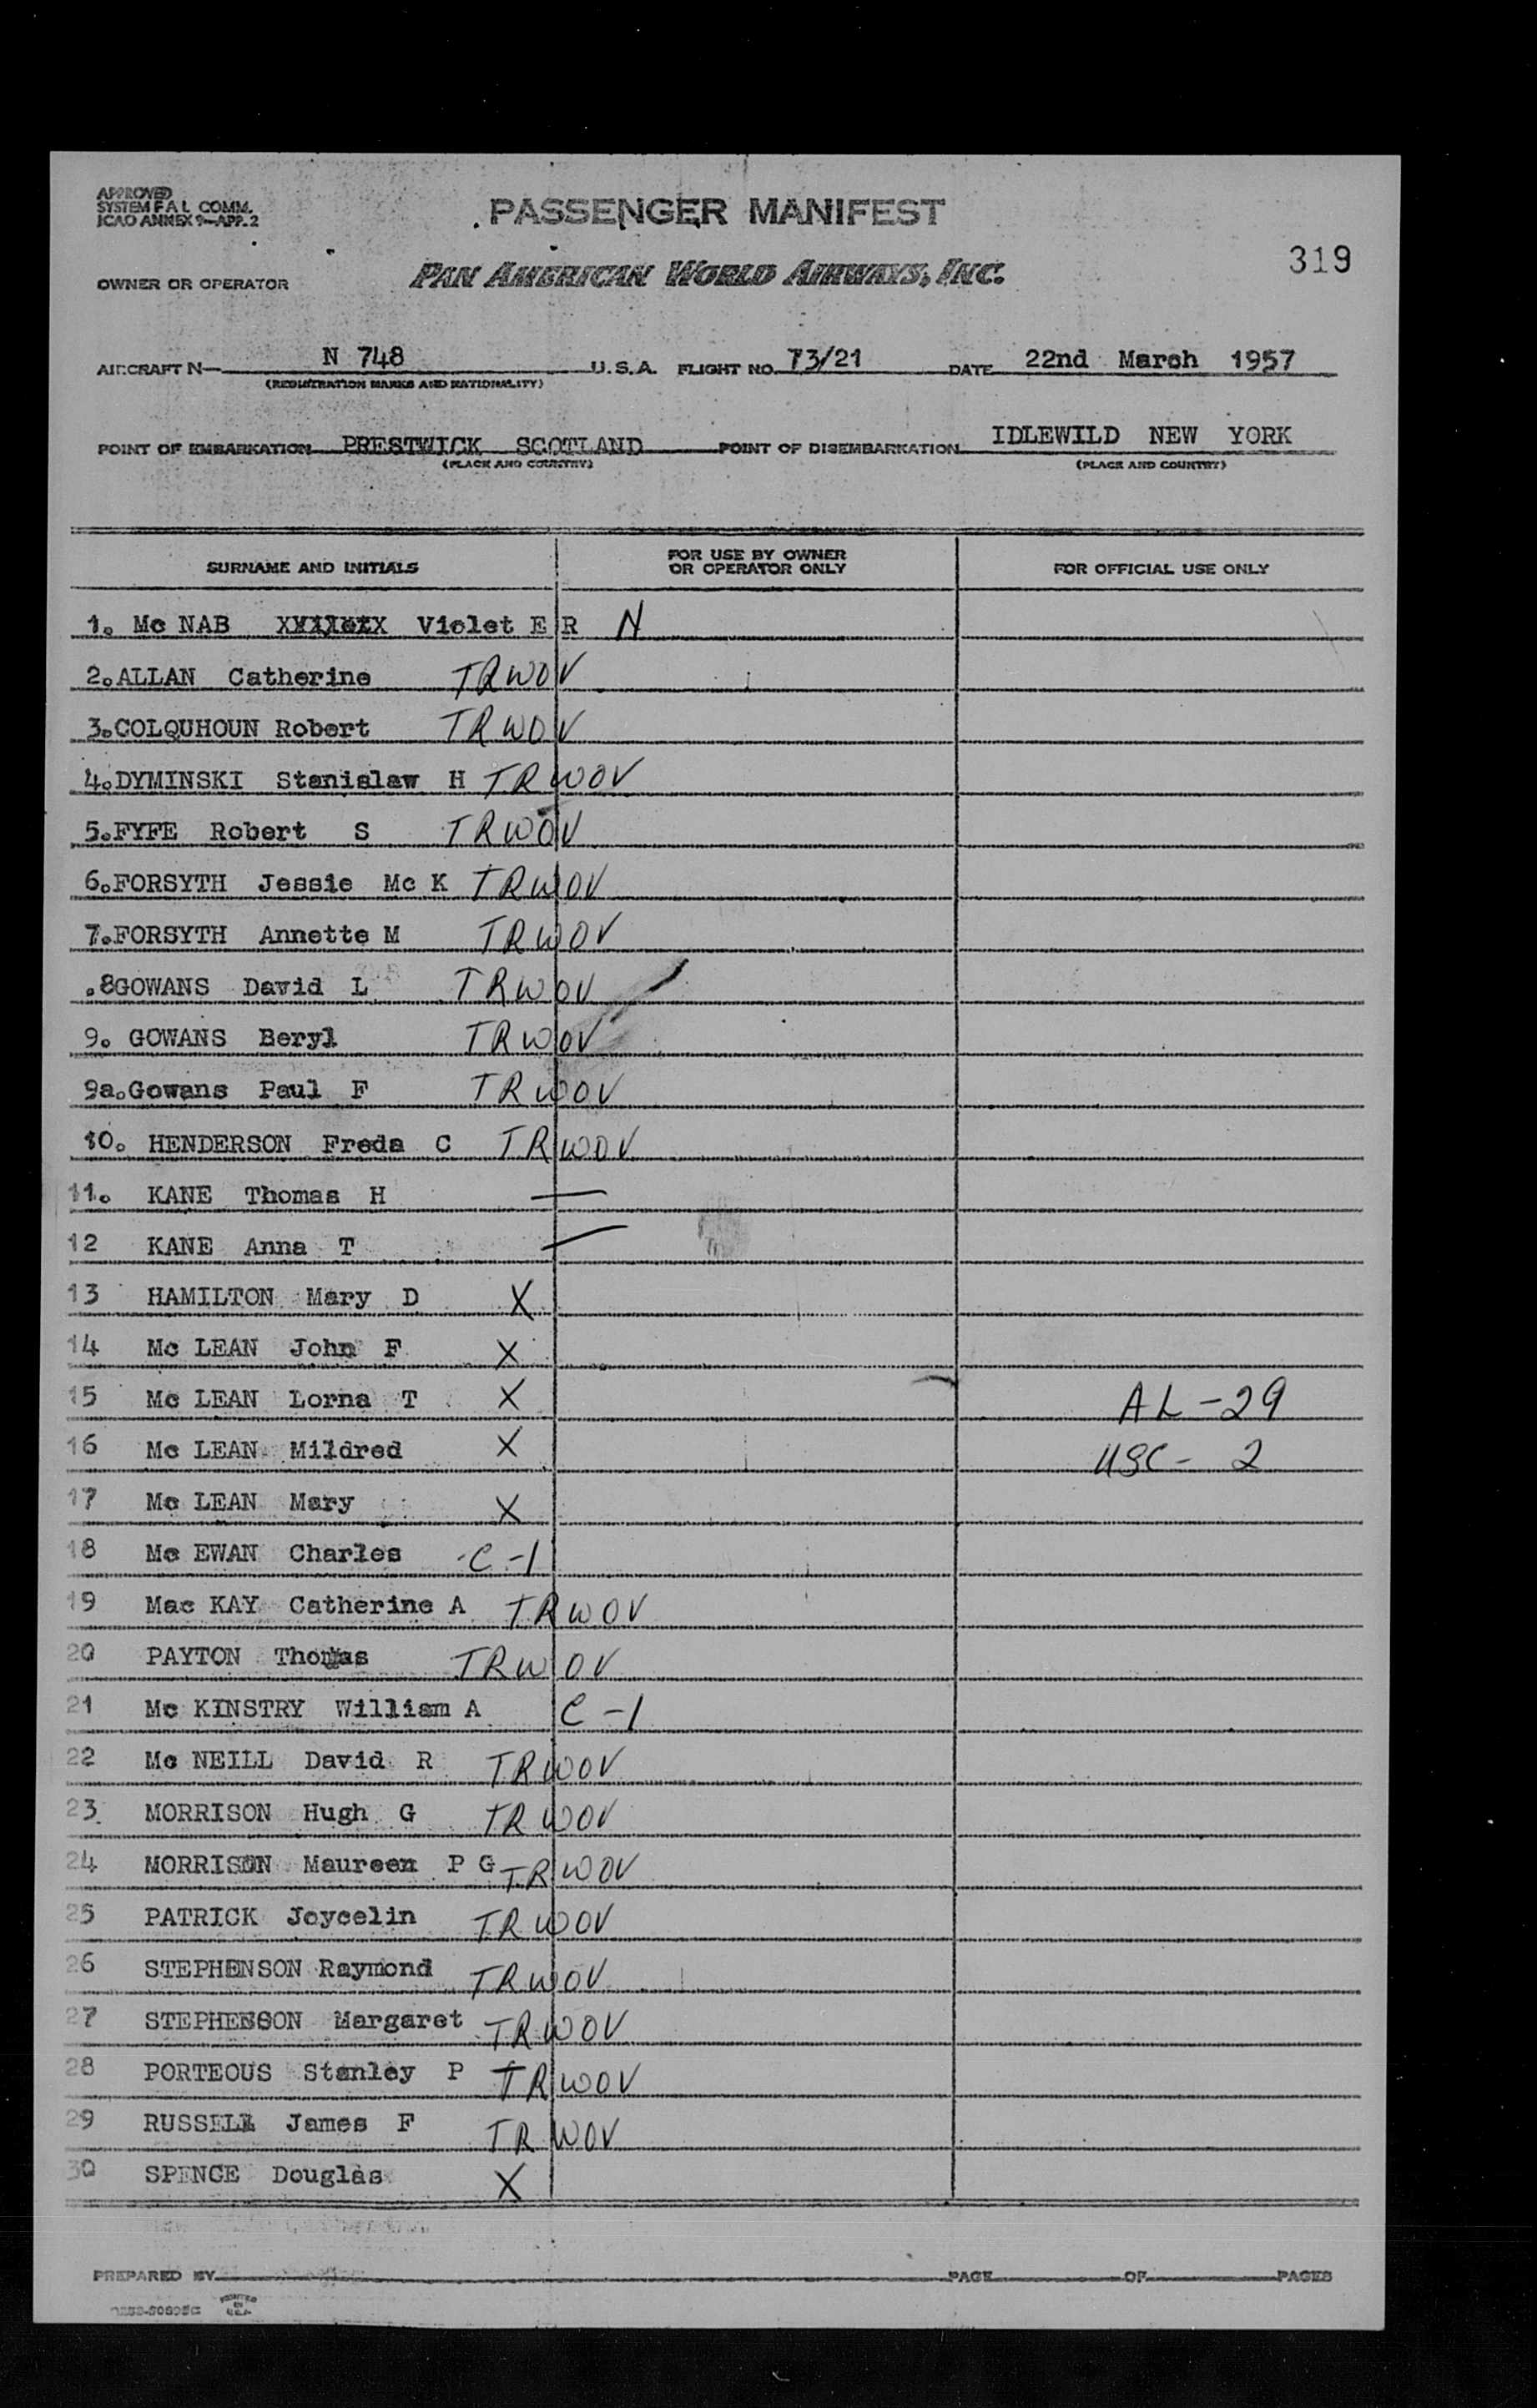 APPROVED
SYSTEM F A L COMM.
ICAO ANNEX 9—APP. 2
PASSENGER MANIFEST
319
OWNER OR OPERATOR PAN AMERICAN WORLD AIRWAYS, INC.
AIRCRAFT N— N 748 U.S.A. FLIGHT NO. 73/21 DATE 22nd March 1957
(REGISTRATION MARKS AND NATIONALITY)
POINT OF EMBARKATION PRESTWICK SCOTLAND POINT OF DISEMBARKATION IDLEWILD NEW YORK
(PLACE AND COUNTRY) (PLACE AND COUNTRY)
SURNAME AND INITIALS FOR USE BY OWNER OR OPERATOR ONLY FOR OFFICIAL USE ONLY
1. Mc NAB Violet E R N
2. ALLAN Catherine TRWOV
3. COLQUHOUN Robert TRWOV
4. DYMINSKI Stanislaw H TRWOV
5. FYFE Robert S TRWOV
6. FORSYTH Jessie Mc K TRWOV
7. FORSYTH Annette M TRWOV
.8 GOWANS David L TRWOV
9. GOWANS Beryl TRWOV
9a. Gowans Paul F TRWOV
10. HENDERSON Freda C TRWOV
11. KANE Thomas H —
12 KANE Anna T —
13 HAMILTON Mary D X
14 Mc LEAN John F X
15 Mc LEAN Lorna T X AL-29
16 Mc LEAN Mildred X USC- 2
17 Mc LEAN Mary X
18 Mc EWAN Charles C-1
19 Mac KAY Catherine A TRWOV
20 PAYTON Thomas TRWOV
21 Mc KINSTRY William A C-1
22 Mc NEILL David R TRWOV
23 MORRISON Hugh G TRWOV
24 MORRISON Maureen P G TRWOV
25 PATRICK Joycelin TRWOV
26 STEPHENSON Raymond TRWOV
27 STEPHENSON Margaret TRWOV
28 PORTEOUS Stanley P TRWOV
29 RUSSELL James F TRWOV
30 SPENCE Douglas X
PREPARED BY PAGE OF PAGES
PRINTED
IN
U.S.A.